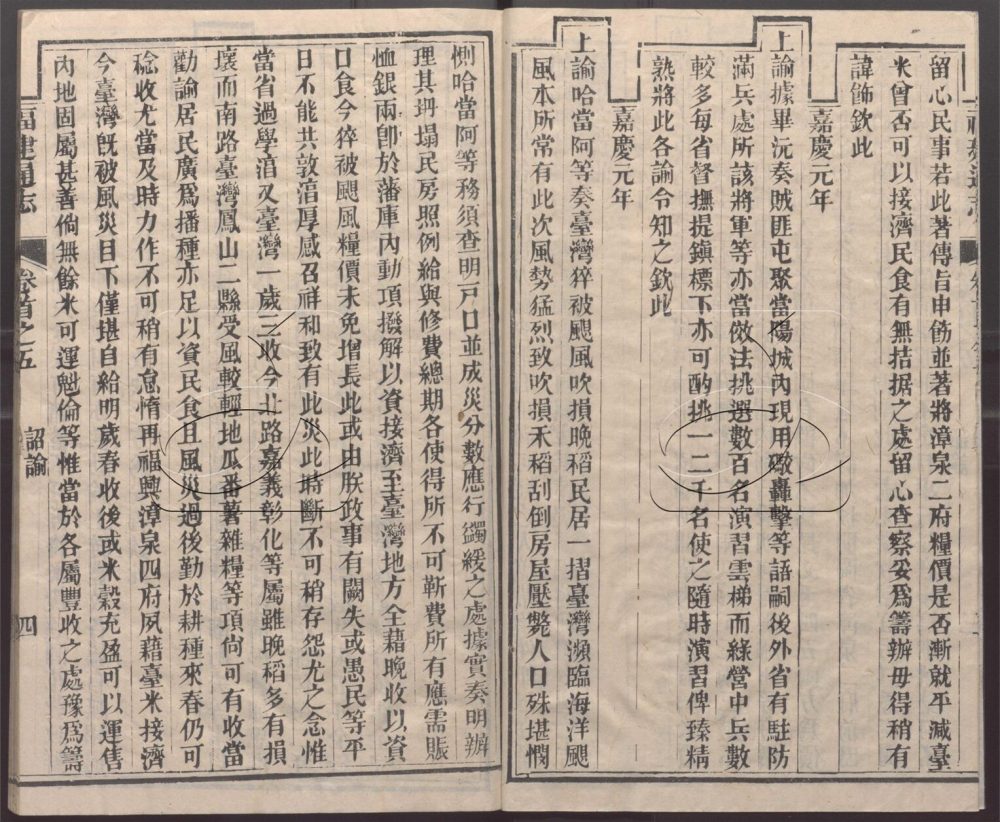 留心民事若此著傳旨申飭並著將漳泉二府糧價是否漸就平減臺
米曾否可以接濟民食有無拮据之處留心查察妥爲籌辦毋得稍有
諱飾欽此
嘉慶元年
上諭據畢沅奏賊匪屯聚當陽城內現用礮轟擊等語嗣後外省有駐防
滿兵處所該將軍等亦當倣法挑選數百名演習雲梯而綠營中兵數
較多每省督撫提鎭標下亦可酌挑一二千名使之隨時演習俾臻精
熟將此各諭令知之欽此
嘉慶元年
上諭哈當阿等奏臺灣猝被颶風吹損晚稻民居一摺臺灣瀕臨海洋颶
風本所常有此次風勢猛烈致吹損禾稻刮倒房屋壓斃人口殊堪憫
惻哈當阿等務須查明戸口並成災分數應行蠲緩之處據實奏明辦
理其坍塌民房照例給與修費總期各使得所不可靳費所有應需賑
恤銀兩卽於藩庫內動項撥解以資接濟至臺灣地方全藉晚收以資
口食今猝被颶風糧價未免增長此或由朕政事有闕失或愚民等平
日不能共敦湻厚感召祥和致有此災此時斷不可稍存怨尤之念惟
當省過學湻又臺灣一歲三收今北路嘉義彰化等屬雖晚稻多有損
壞而南路臺灣鳳山二縣受風較輕地瓜番薯雜糧等項尙可有收當
勸諭居民廣爲播種亦足以資民食且風災過後勤於耕種來春仍可
稔收尤當及時力作不可稍有怠惰再福興漳泉四府夙藉臺米接濟
今臺灣旣被風災目下僅堪自給明歲春收後或米穀充盈可以運售
內地固屬甚善倘無餘米可運魁倫等惟當於各屬豐收之處豫爲籌
福建通志
卷首之五
詔諭
四